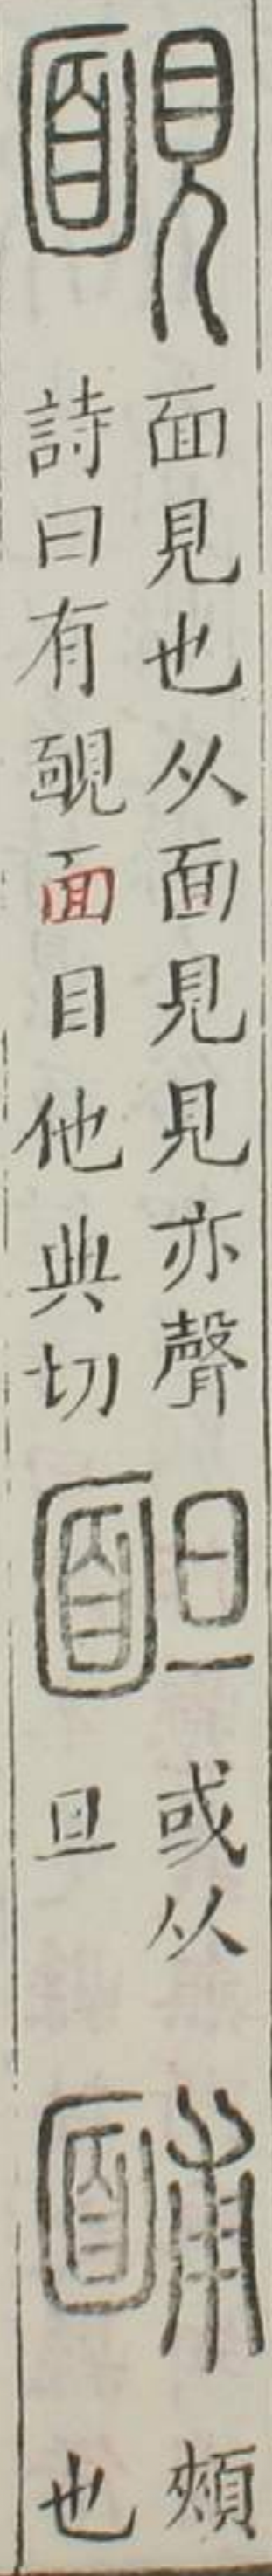 靦
面見也从面見見亦聲
詩曰有靦面目他典切
䩆
或从
旦
酺
頰
也